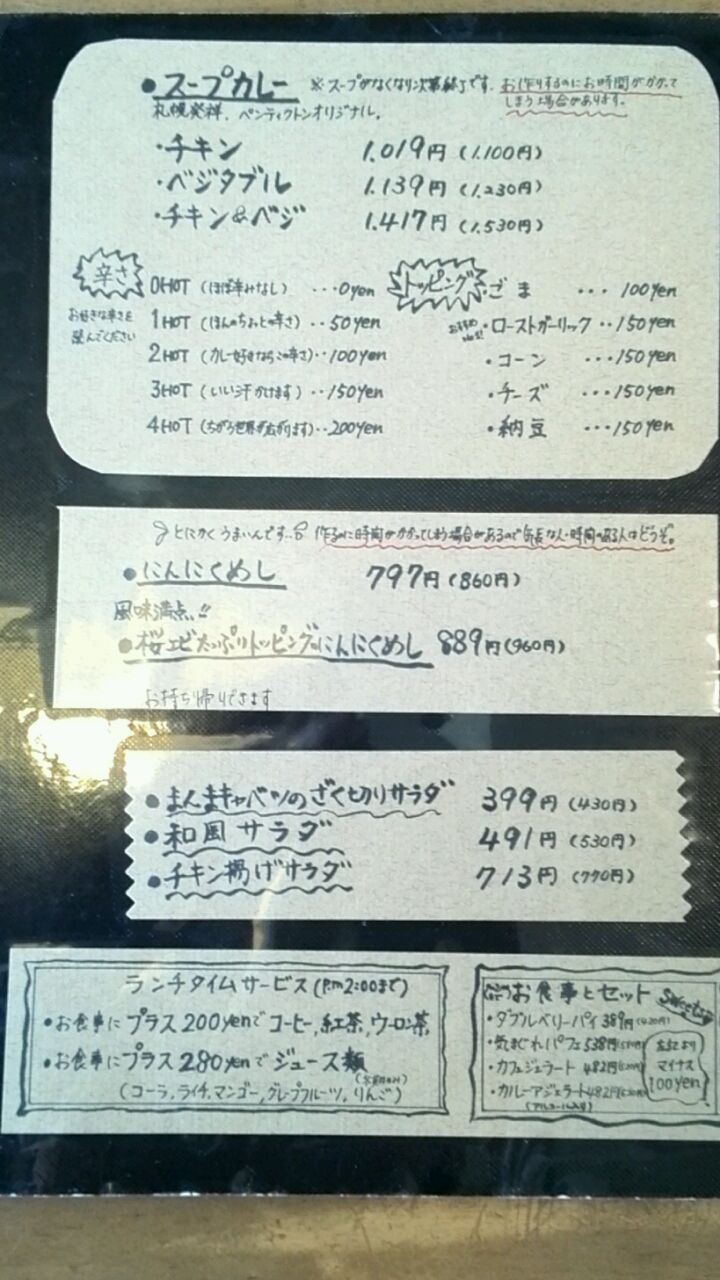 ●スープカレー ※スープがなくなり次第終了です。お作りするのにお時間がかかって
しまう場合があります。
札幌発祥、ペンティクトンオリジナル。
・チキン 1.019円(1.100円)
・ベジタブル 1.139円(1.230円)
・チキン&ベジ 1.417円(1.530円)
辛さ
お好きな辛さを
選んでください
0HOT (ほぼ辛みなし) ･･･0yen
1HOT (ほんのちょっとの辛さ)･･50yen
2HOT (カレー好きならこの辛さ)･･100yen
3HOT (いい汗かけます) ･･150yen
4HOT (ちがう世界が広がります)･･200yen
トッピング
・ごま ･･･100yen
おすすめ
・ローストガーリック･･150yen
・コーン ･･･150yen
・チーズ ･･･150yen
・納豆 ･･･150yen
とにかくうまいんです… 作るのに時間がかかってしまう場合があるので気長な人・時間のある人はどうぞ。
●にんにくめし 797円(860円)
風味満点!!
●桜エビたっぷりトッピングのにんにくめし 889円(960円)
お持ち帰りできます
●まんまキャベツのざく切りサラダ 399円(430円)
●和風サラダ 491円(530円)
●チキン揚げサラダ 713円(770円)
ランチタイムサービス(P.m2:00まで)
・お食事にプラス200yenでコーヒー,紅茶,ウーロン茶
・お食事にプラス280yenでジュース類
(コーラ,ライチ,マンゴー,グレープフルーツ,りんご)
お食事とセット Sweets
・ダブルベリーパイ 389円(420円)
・気まぐれパフェ 538円
・カフェジェラート 482円
・カルーアジェラート 482円
(アルコール入り)
左記より
マイナス
100yen